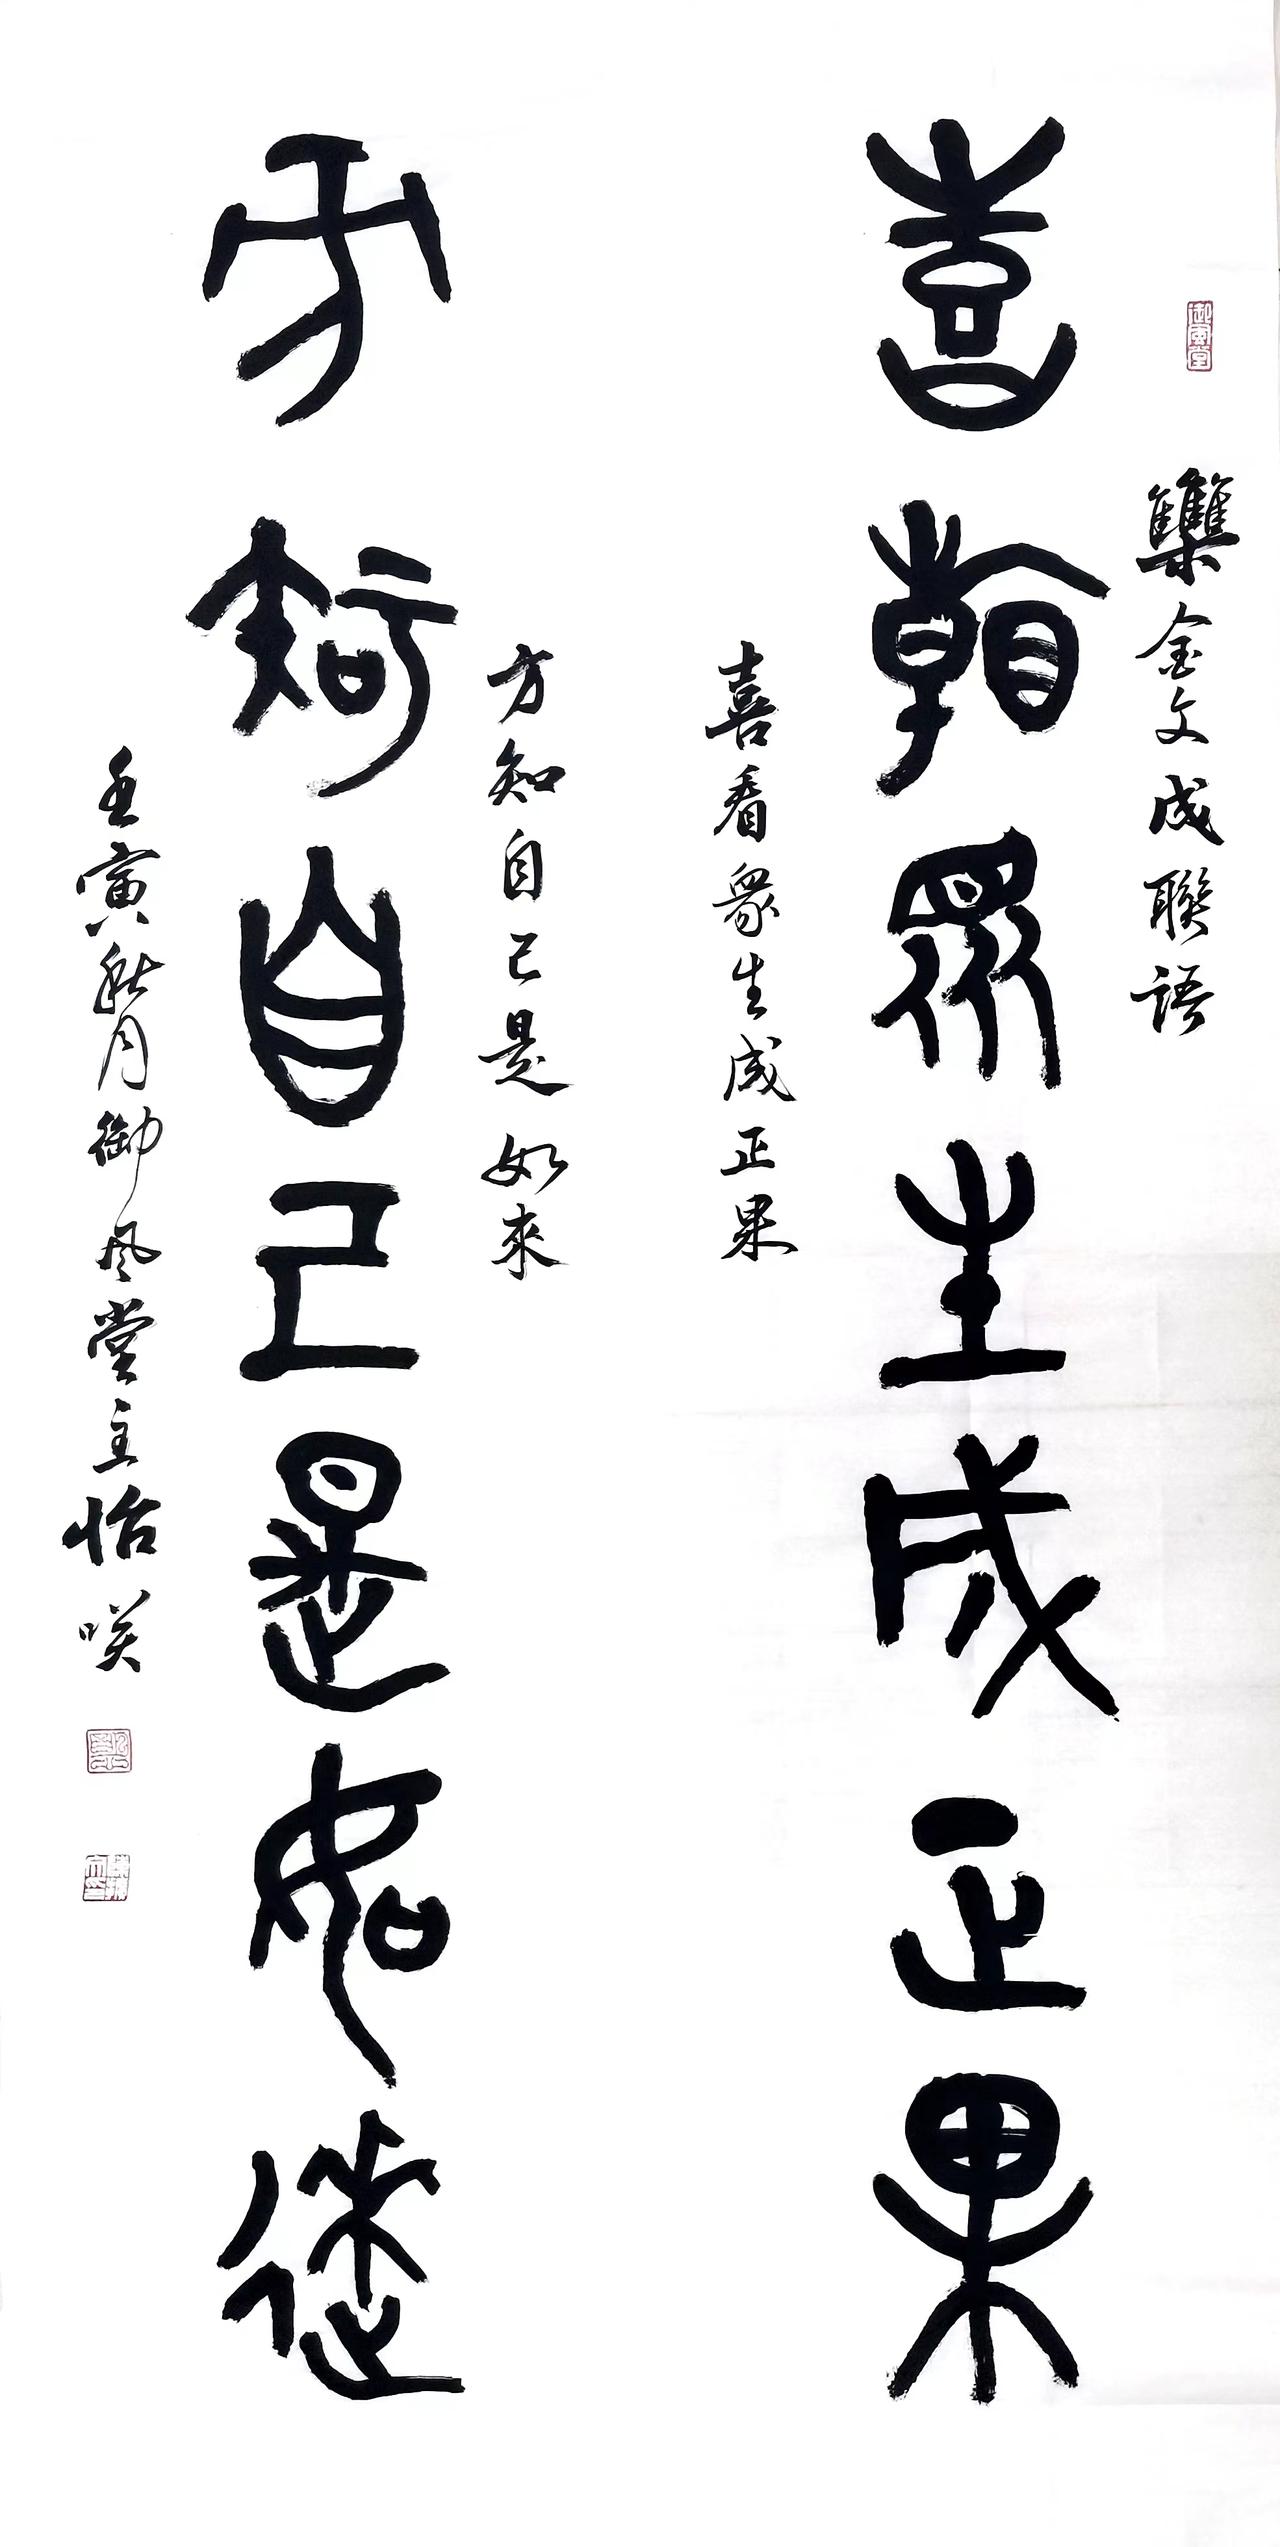 御風堂
雧金文成聯語
喜看眾生成正果
喜看眾生成正果
方知自己是如來
方知自己是如來
壬寅秋月御风堂主怡咲